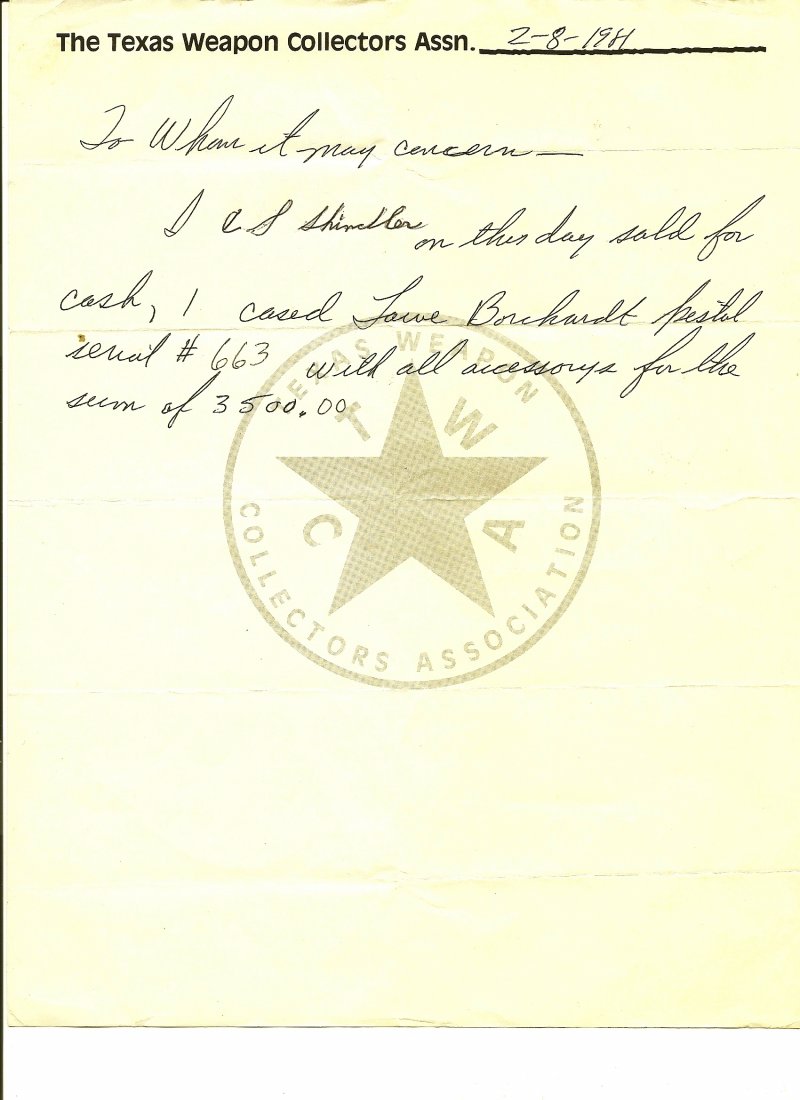 The Texas Weapon Collectors Assn. 2-8-1981
To Whom it may concern—
I C S Shindler on this day sold for
cash, 1 cased Lowe Borchardt pistol
serial # 663 with all accessorys for the
sum of 3500.00
TEXAS WEAPON
T W
C A
COLLECTORS ASSOCIATION